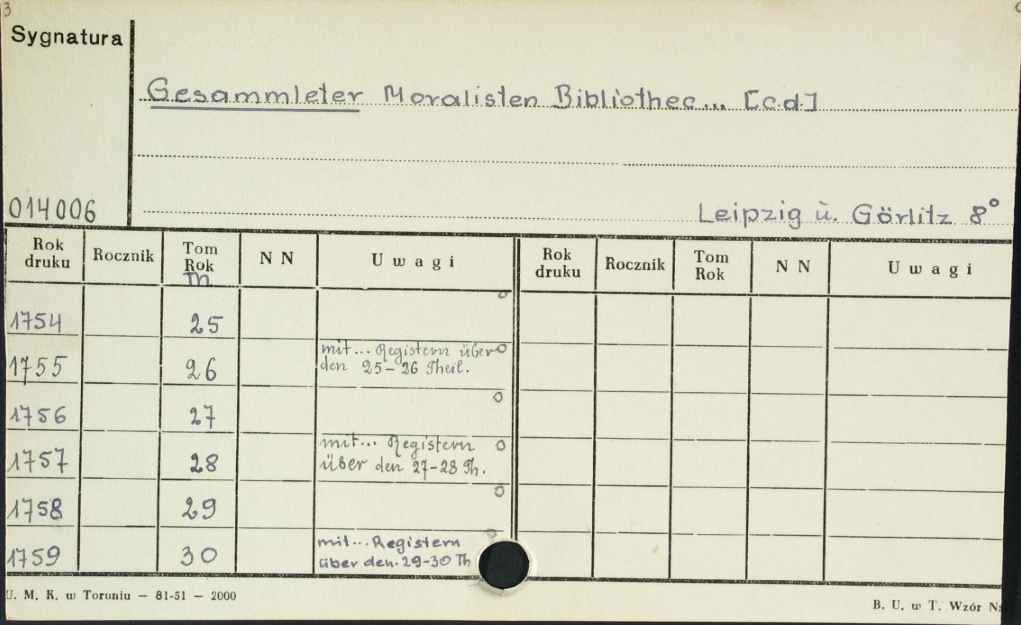 3
Sygnatura
Gesammleter Moralisten Bibliothec... [c.d.]
014006
Leipzig u. Görlitz 8°
Rok druku Rocznik Tom Rok Th. N N Uwagi Rok druku Rocznik Tom Rok N N Uwagi
1754 25
1755 26 mit... Registern über
den 25-26 Theil.
1756 27
1757 28 mit... Registern
über den 27-28 Th.
1758 29
1759 30 mit... Registern
über den 29-30 Th
U. M. K. w Toruniu — 81-51 — 2000
B. U. w T. Wzór Nr